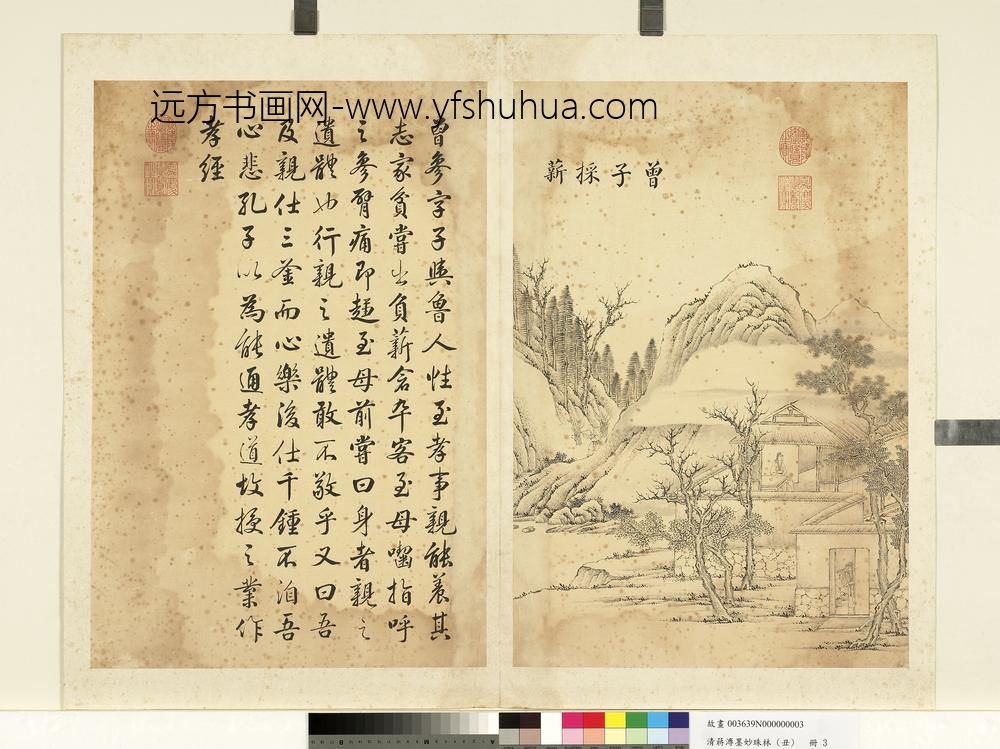 远方书画网-www.yfshuhua.com
曾子採薪
曾參字子輿魯人性至孝事親能養其
志家貧嘗出負薪倉卒客至母嚙指呼
之參臂痛即趨至母前嘗曰身者親之
遺體也行親之遺體敢不敬乎又曰吾
及親仕三釜而心樂後仕千鍾不洎吾
心悲孔子以為能通孝道故授之業作
孝經
故畫 003639N000000003
清蔣溥墨妙珠林（丑） 冊 3